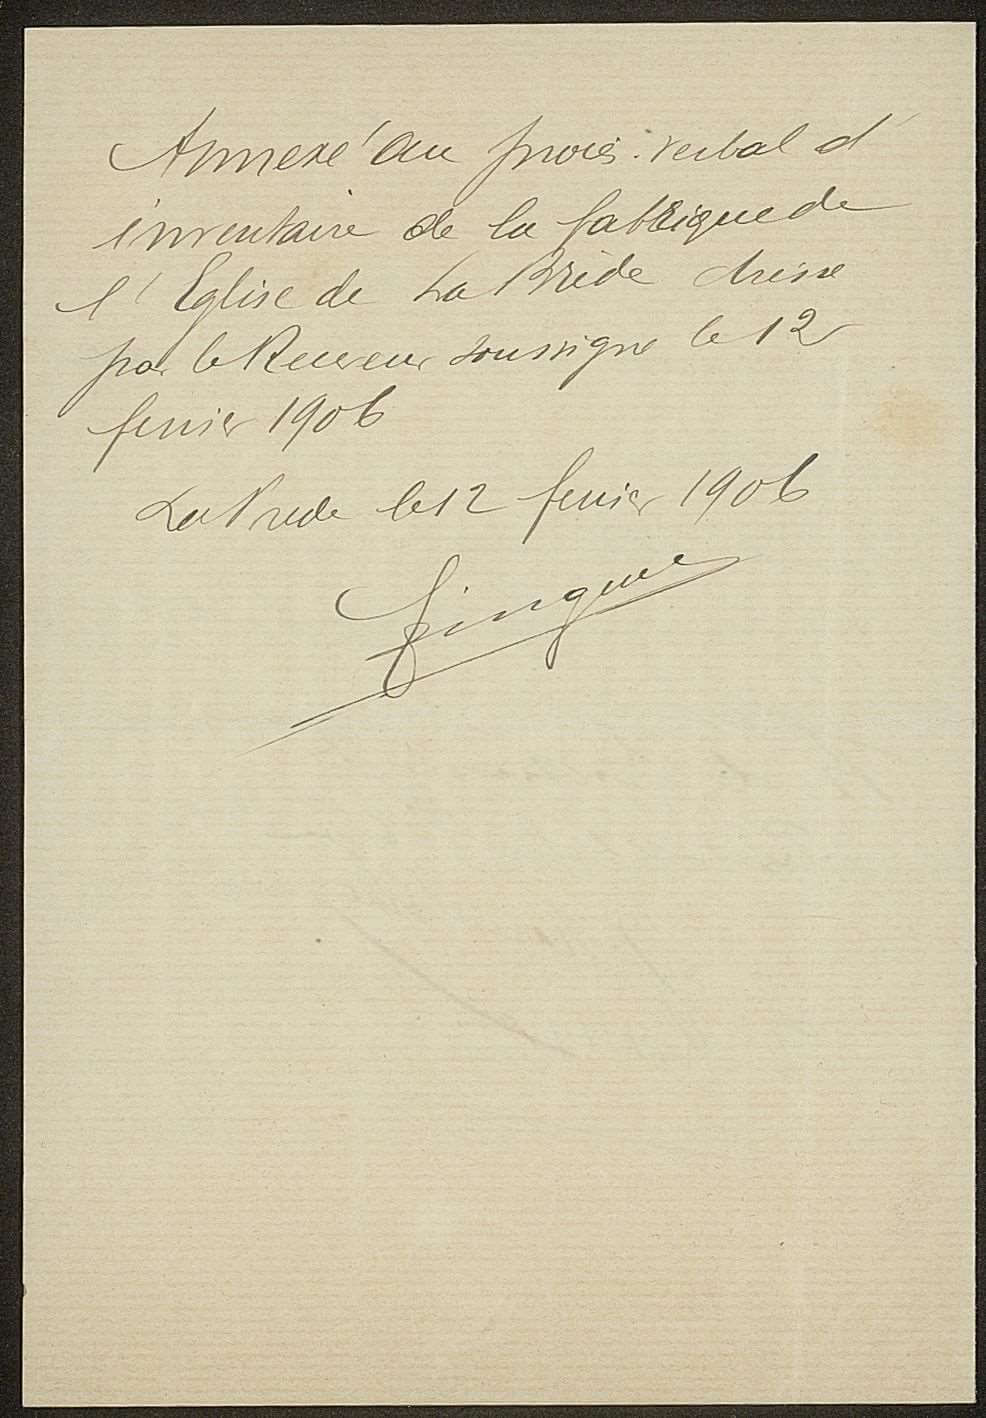 Annexé au procès-verbal d'
inventaire de la fabrique de
l'Eglise de La Brède dressé
par le Receveur soussigné le 12
fevrier 1906
La Brede le 12 fevrier 1906